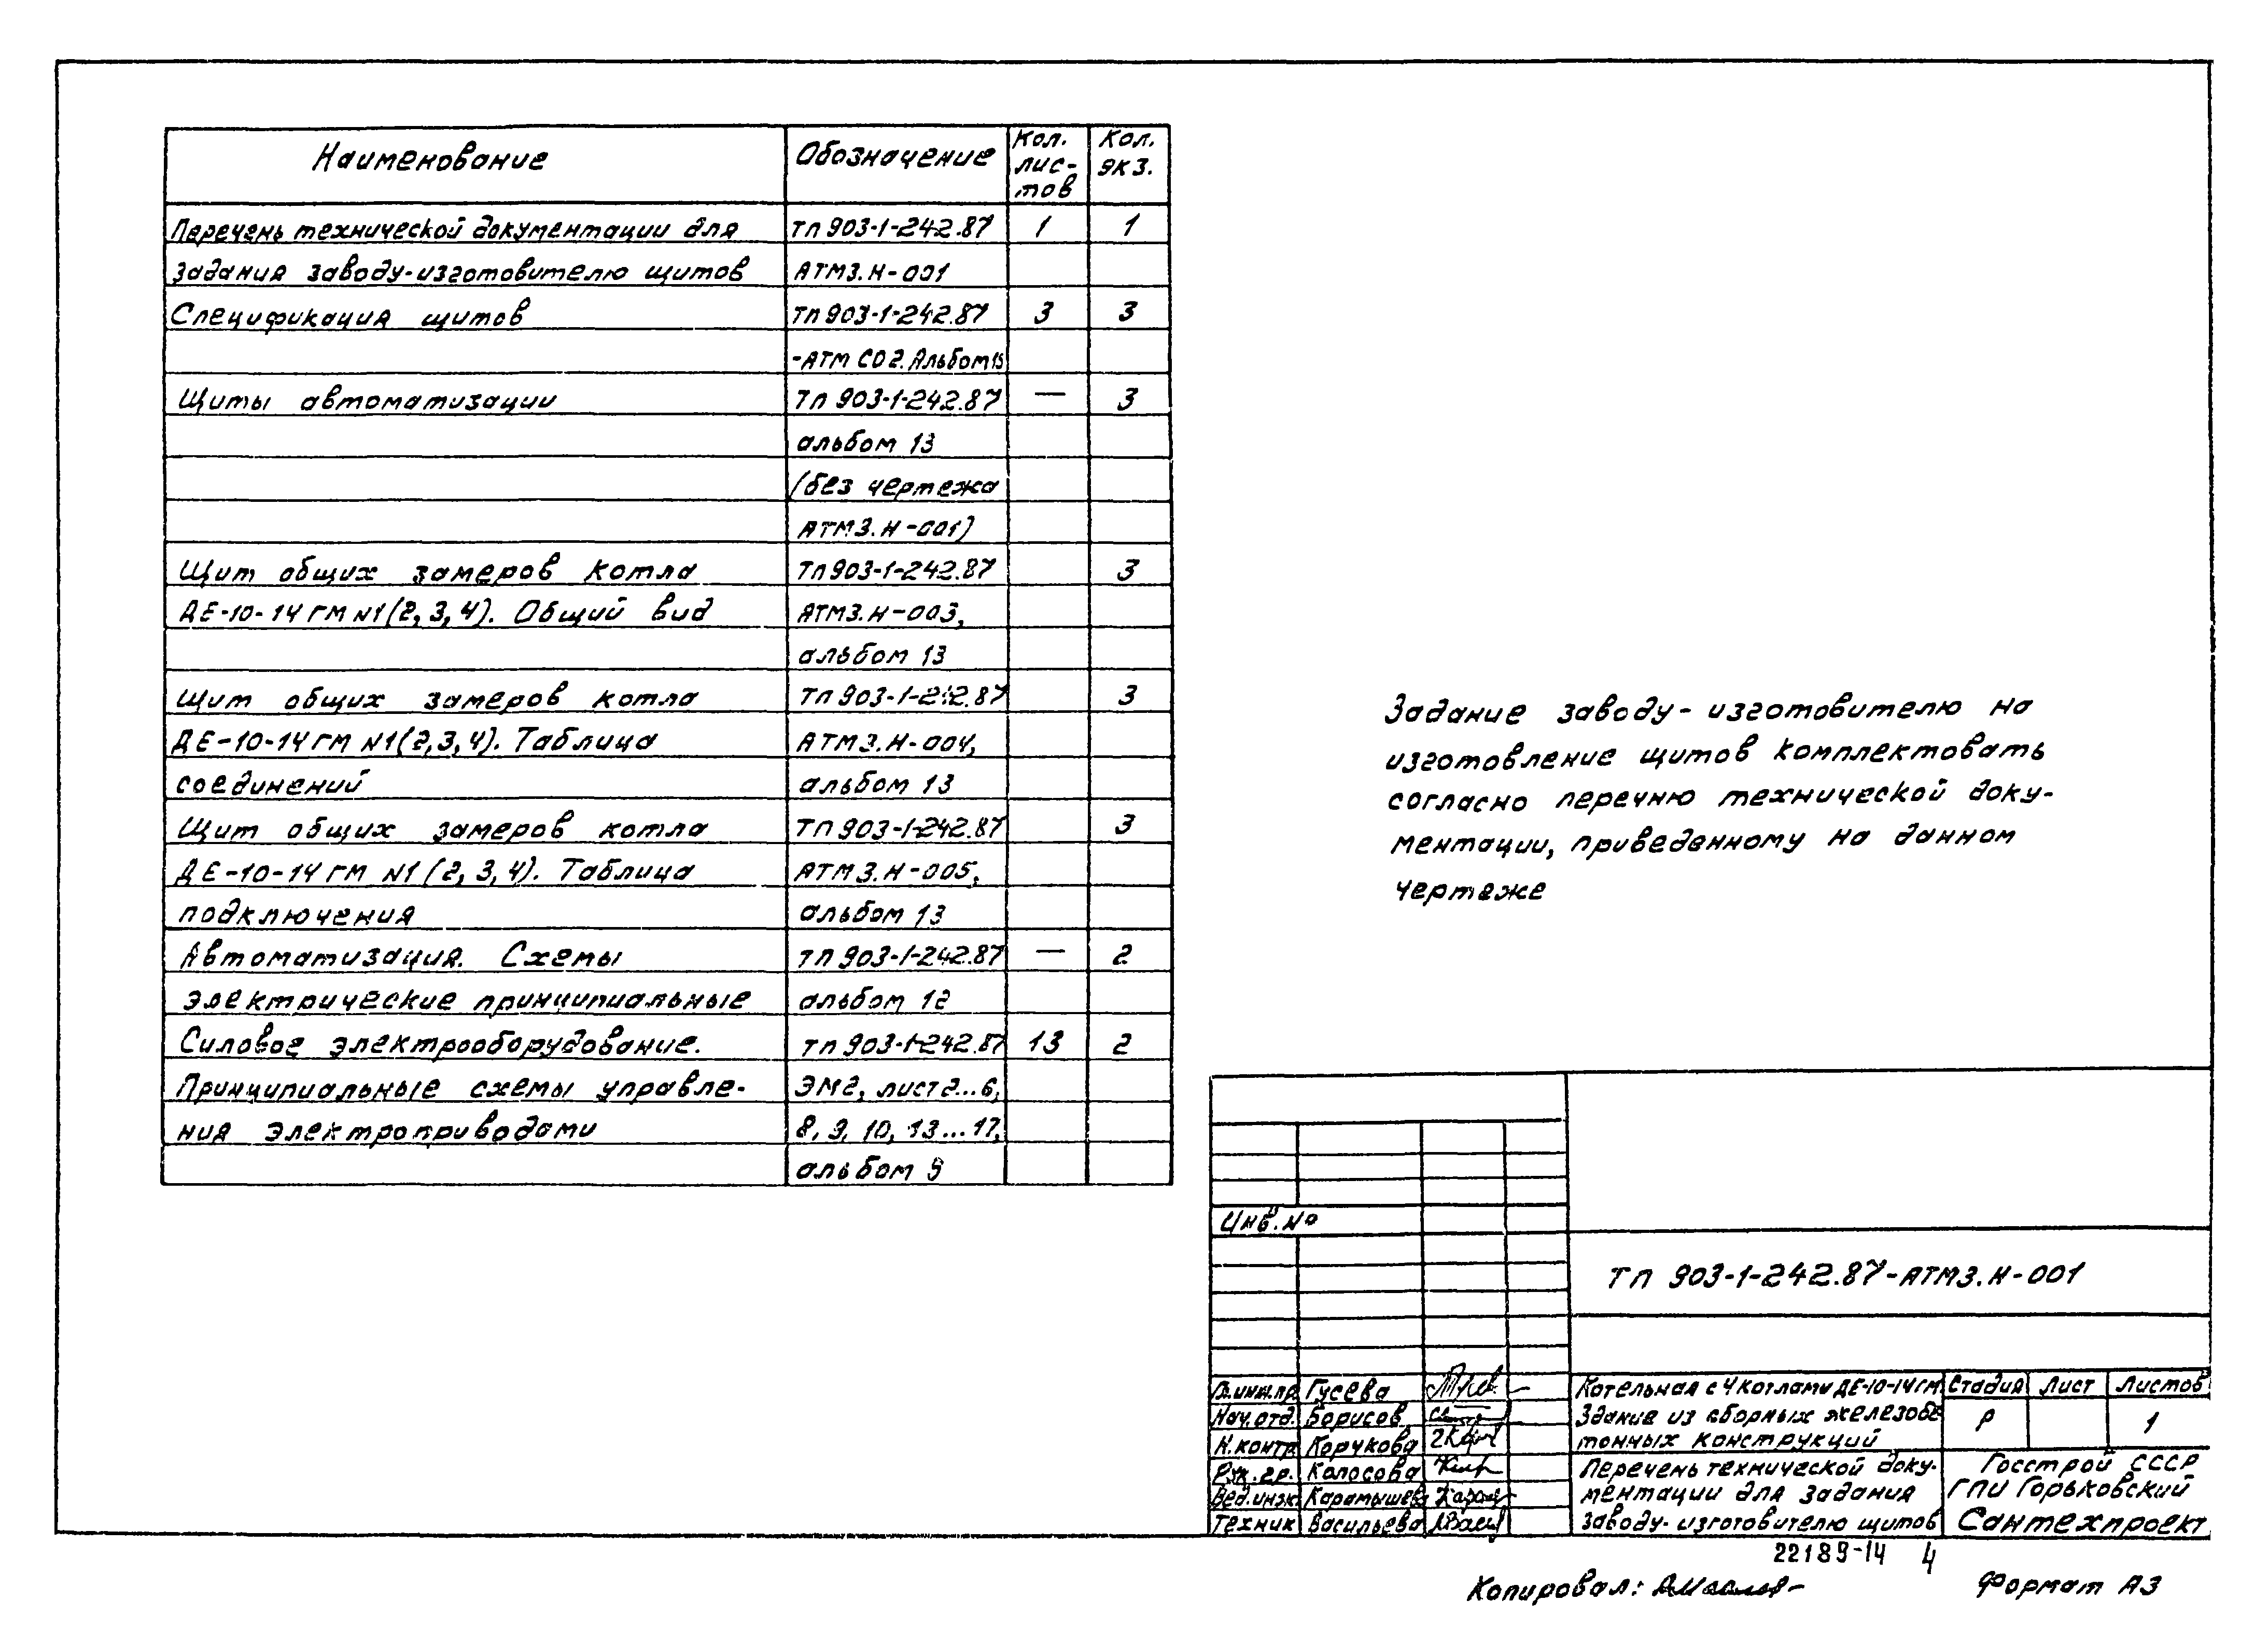 Наименование Обозначение Кол. листов Кол. экз.
Перечень технической документации для ТП 903-1-242.87 1 1
задания заводу-изготовителю щитов АТМ3.Н-001
Спецификация щитов ТП 903-1-242.87 3 3
-АТМ СО2. Альбом 15
Щиты автоматизации ТП 903-1-242.87 — 3
альбом 13
(без чертежа
АТМ3.Н-001)
Щит общих замеров котла ТП 903-1-242.87 3
ДЕ-10-14 ГМ N1(2,3,4). Общий вид АТМ3.Н-003,
альбом 13
Щит общих замеров котла ТП 903-1-242.87 3
ДЕ-10-14 ГМ N1(2,3,4). Таблица АТМ3.Н-004,
соединений альбом 13
Щит общих замеров котла ТП 903-1-242.87 3
ДЕ-10-14 ГМ N1(2,3,4). Таблица АТМ3.Н-005,
подключения альбом 13
Автоматизация. Схемы ТП 903-1-242.87 — 2
электрические принципиальные альбом 12
Силовое электрооборудование. ТП 903-1-242.87 13 2
Принципиальные схемы управле- ЭМ2, лист 2...6,
ния электроприводами 8, 9, 10, 13...17,
альбом 9
Задание заводу-изготовителю на
изготовление щитов комплектовать
согласно перечню технической доку-
ментации, приведенному на данном
чертеже
Инв. №
ТП 903-1-242.87-АТМ3.Н-001
Гл.инж.пр. Гусева
Нач.отд. Борисов
Н.контр. Корчкова
Рук.гр. Колосова
Вед.инж. Карамышева
Техник Васильева
Котельная с 4 котлами ДЕ-10-14 ГМ
Здание из сборных железобе
тонных конструкций
Стадия Лист Листов
Р 1
Перечень технической доку-
ментации для задания
заводу-изготовителю щитов
Госстрой СССР
ГПИ Горьковский
Сантехпроект
22189-14 4
Копировал:
Формат А3